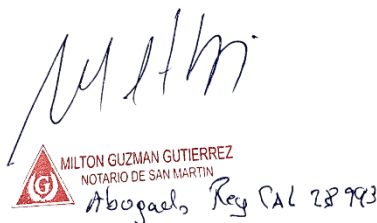 MILTON GUZMAN GUTIERREZ
G
NOTARIO DE SAN MARTIN
Abogado Reg CAL 28993